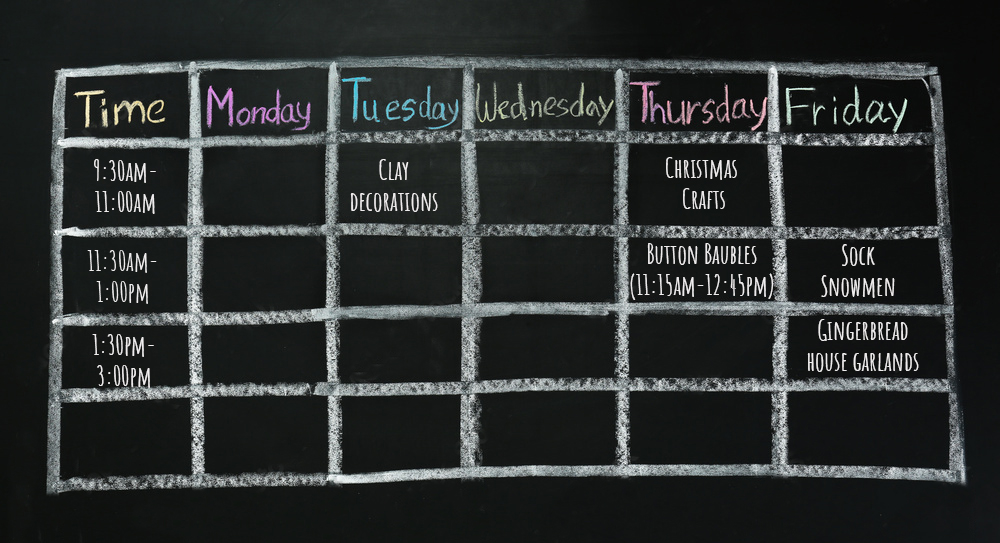 Time Monday Tuesday Wednesday Thursday Friday
9:30AM- 
11:00AM
Clay
decorations
Christmas
Crafts
11:30AM-
1:00PM
Button Baubles
(11:15AM-12:45PM)
Sock
Snowmen
1:30PM-
3:00PM
Gingerbread
house garlands